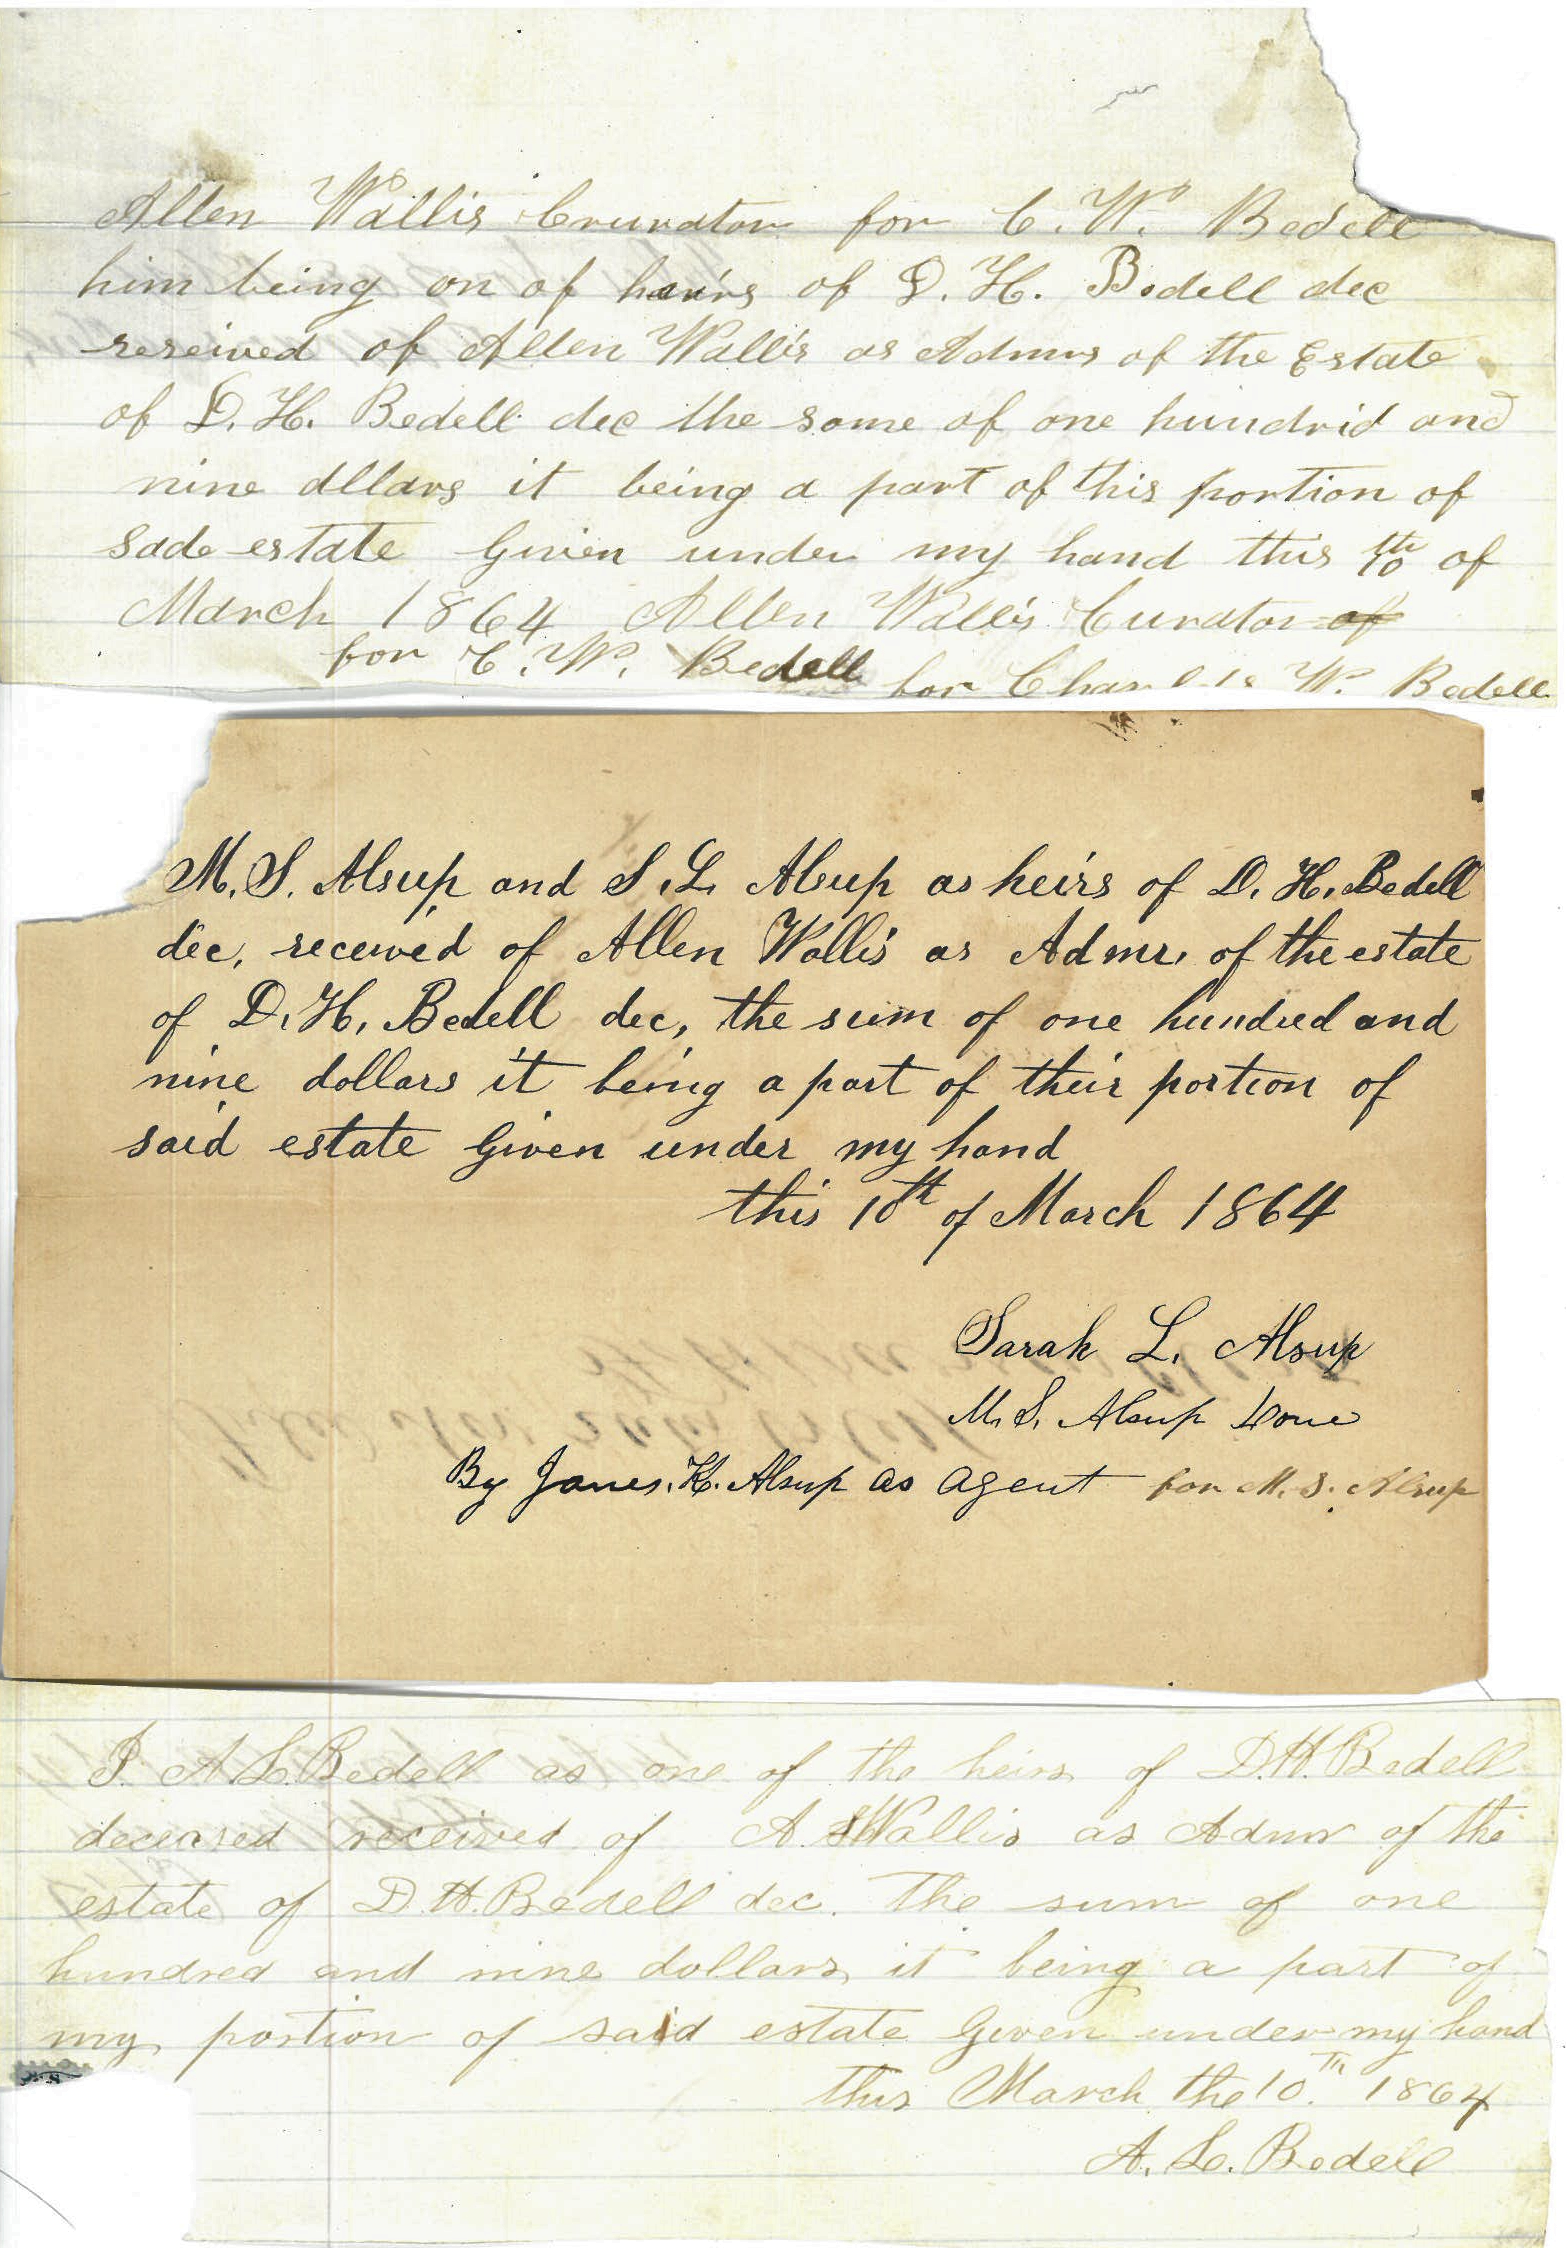 Allen Wallis Crurator for C. W. Bedell
him being on of heirs of D. H. Bedell dec
reseived of Allen Wallis as Admrs of the Estate
of D. H. Bedell dec the some of one hundrid and
nine dllars it being a part of this portion of
sade estate Given under my hand this 10th of
March 1864 Allen Wallis Curator of
for C. W. Bedell for Charles W. Bedell
M. S. Alsup and S. L. Alsup as heirs of D. H. Bedell
dec, received of Allen Wallis as Admr. of the estate
of D. H. Bedell dec, the sum of one hundred and
nine dollars it being a part of their portion of
said estate Given under my hand
this 10th of March 1864
Sarah L. Alsup
M. S. Alsup
By James. K. Alsup as agent for M. S. Alsup
I. A L. Bedell as one of the heirs of D. H. Bedell
deceased received of A. Wallis as Admr of the
estate of D. H. Bedell dec. The sum of one
hundred and nine dollars, it being a part of
my portion of said estate Given under my hand
this March the 10.TH 1864
A. L. Bedell